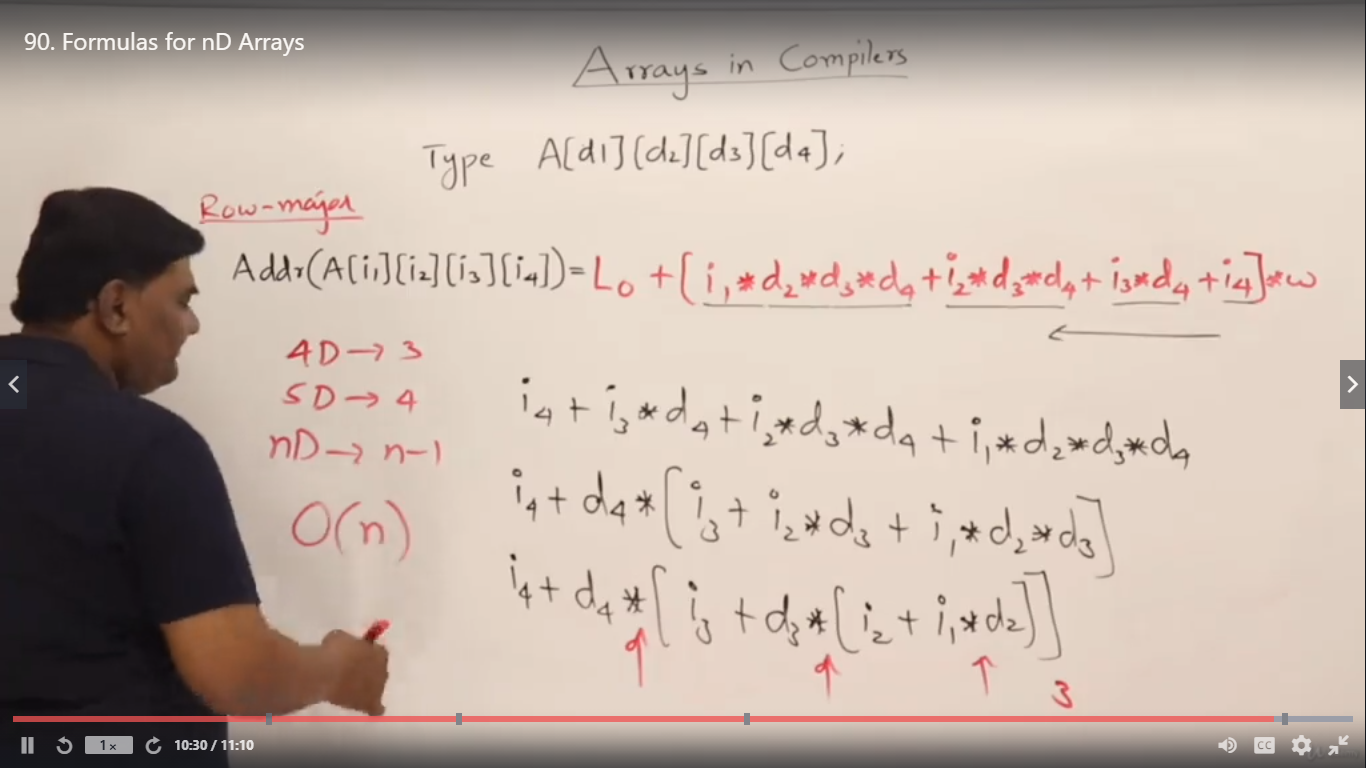 90. Formulas for nD Arrays
Arrays in Compilers
Type A[d1][d2][d3][d4];
Row-major
Addr(A[i1][i2][i3][i4])=L0+[i1*d2*d3*d4+i2*d3*d4+i3*d4+i4]*w
4D→3
5D→4
nD→n-1
O(n)
i4+i3*d4+i2*d3*d4+i1*d2*d3*d4
i4+d4*[i3+i2*d3+i1*d2*d3]
i4+d4*[i3+d3*[i2+i1*d2]]
3
1x
10:30 / 11:10
CC